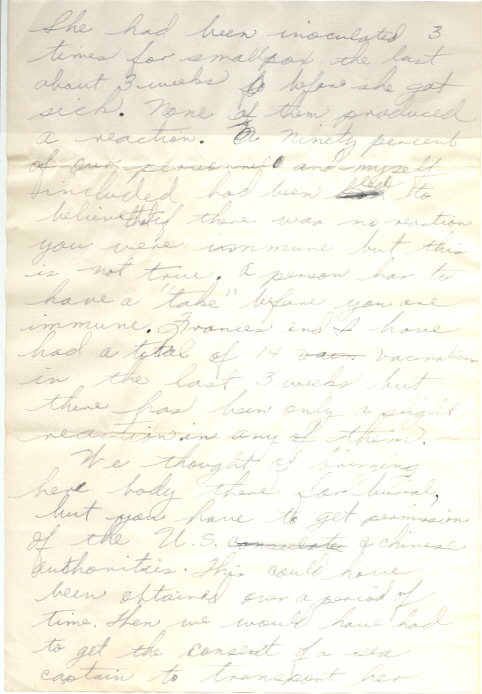 She had been inoculated 3
times for smallpox, the last
about 3 weeks before she got
sick. None of them produced
a reaction. Ninety percent
of our personnel and myself
included had been led to
believe that if there was no reaction
you were immune but this
is not true. A person has to
have a "take" before you are
immune. Frances and I have
had a total of 14 vac. vacination
in the last 3 weeks but
there has been only a slight
reaction in any of them.
We thought of bringing
her body there for burial,
but you have to get permission
of the U.S. consulates & Chinese
authorities. This could have
been obtained over a period of
time. Then we would have had
to get the consent of a sea
captain to transport her